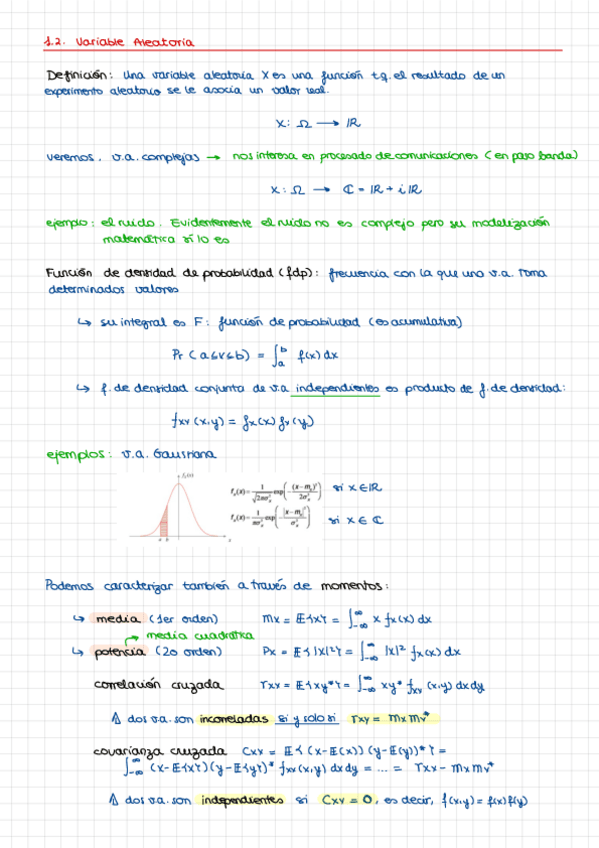 1.2. Variable Aleatoria
Definición: Una variable aleatoria X es una función t.q. el resultado de un
experimento aleatorio se le asocia un valor real.
X: Ω → ℝ
veremos, v.a. complejas → nos interesa en procesado de comunicaciones (en paso banda)
X: Ω → ℂ = ℝ + iℝ
ejemplo: el ruido. Evidentemente el ruido no es complejo pero su modelización
matemática sí lo es
Función de densidad de probabilidad (fdp): frecuencia con la que una v.a. toma
determinados valores
↳ su integral es F: función de probabilidad (es acumulativa)
Pr (a≤v≤b) = ∫_a^b f(x) dx
↳ f. de densidad conjunta de v.a independientes es producto de f. de densidad:
fxy (x,y) = fx(x) fy(y)
ejemplos: v.a. Gaussiana
f_x(x)
a b x
f_x(x) = 1/√(2πσ_x²) exp(-(x-m_x)²/2σ_x²) si x ∈ ℝ
f_x(x) = 1/πσ_x² exp(-|x-m_x|²/σ_x²) si x ∈ ℂ
Podemos caracterizar también a través de momentos:
↳ media (1er orden) mx = E{x} = ∫_-∞^∞ x fx(x) dx
→ media cuadrática
↳ potencia (2o orden) Px = E{|x|²} = ∫_-∞^∞ |x|² fx(x) dx
correlación cruzada rxy = E{xy*} = ∫_-∞^∞ xy* fxy (x,y) dxdy
⚠ dos v.a. son incorreladas si y solo si rxy = mx my*
covarianza cruzada Cxy = E{(x-E(x)) (y-E(y))*} =
∫_-∞^∞ (x-E{x})(y-E{y})* fxy(x,y) dxdy = ... = rxy - mx my*
⚠ dos v.a. son independientes si Cxy = 0, es decir, f(x,y) = f(x)f(y)